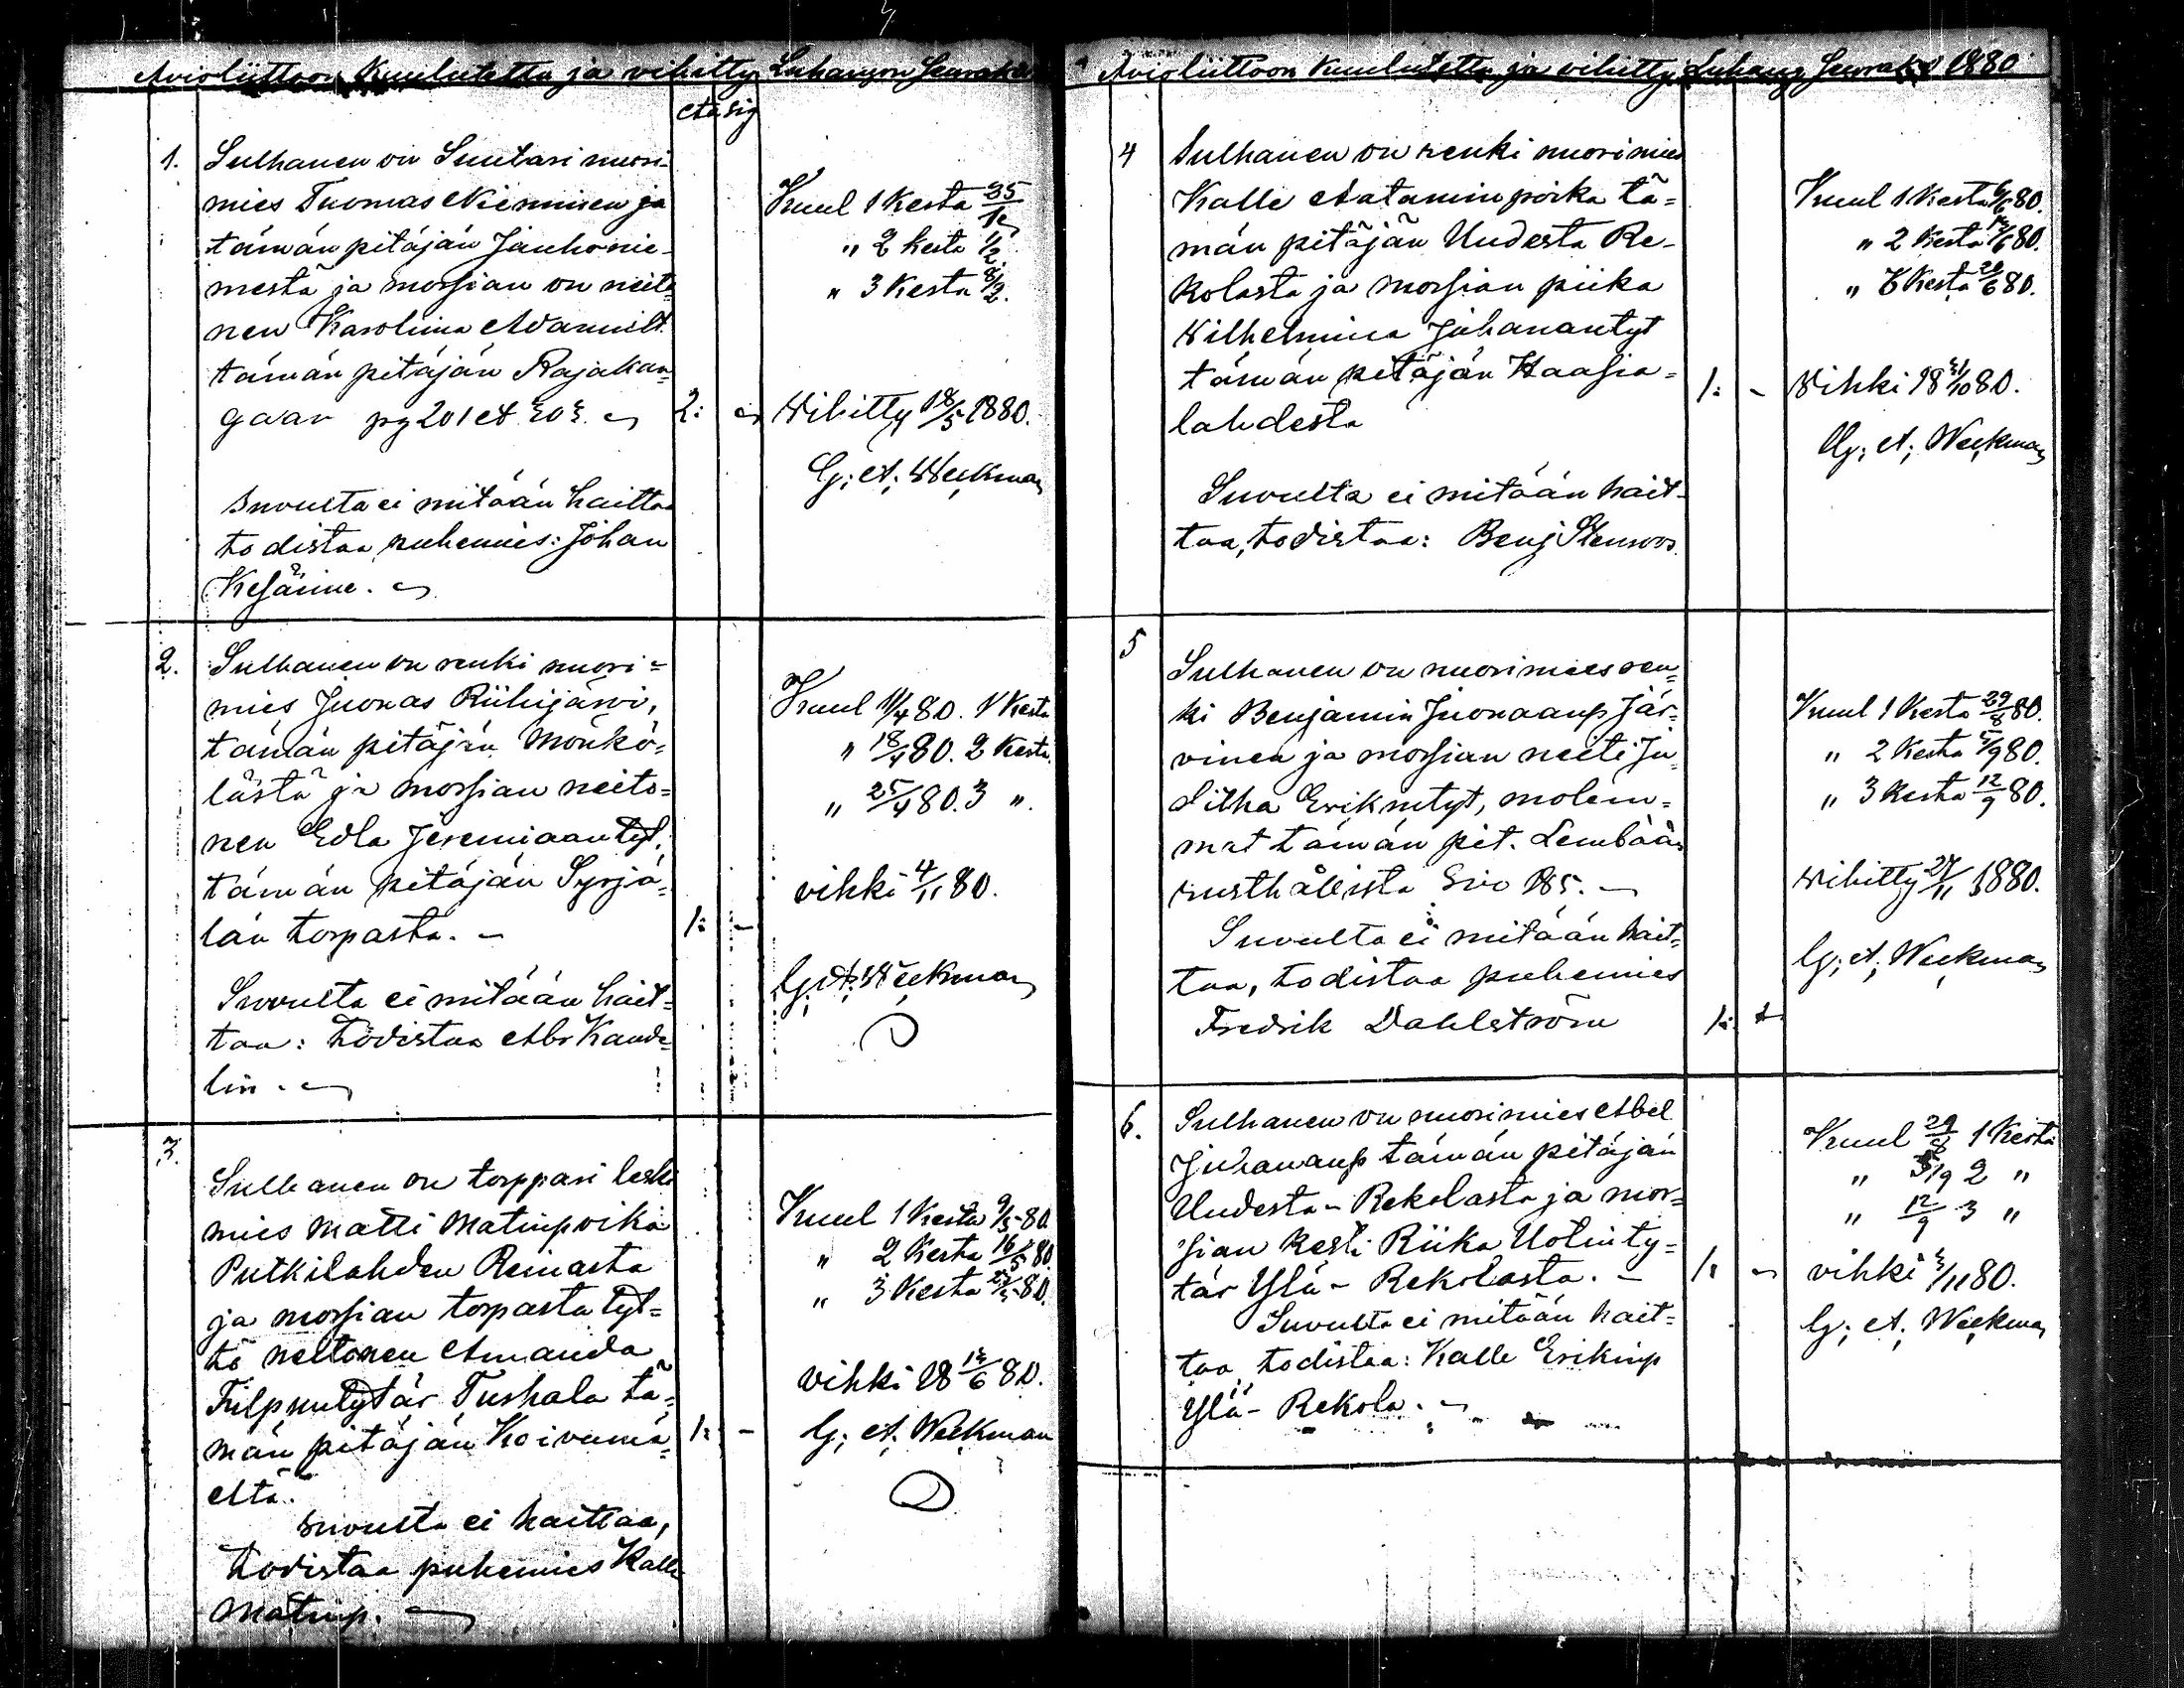 Avioliittoon Kuulutettu ja vihitty Luhangon Seurak
1. Sulhanen on Suutari nuori-
mies Tuomas Nieminen ja
tämän pitäjän Jauhonie-
mestä ja morsian on neito-
nen Karoliina Adamint.
tämän pitäjän Rajakan-
gaan pg 201 2:
suvulta ei mitään haittaa
todistaa puhemies: Johan
Kesänne.
Kuul 1 Kerta 25/1
" 2 kerta 1/2.
" 3 Kerta 8/2.
Wihitty 18/5 1880.
G; A; Weckman
2. Sulhanen on renki nuori=
mies Juonas Riihijärvi,
tämän pitäjän Mönkö=
lästä ja morsian neito=
nen Edla Jeremiaantyt.
tämän pitäjän Syrjä=
län torpasta. - 1: -
Suvulta ei mitään hait=
taa: todistaa Abr Kande=
lin.
Kuul 11/4 80. 1 Kerta
" 18/4 80. 2 Kerta
" 25/4 80. 3 "
vihki 4/11 80.
G; A; Weckman
3. Sulhanen on torppari leski
mies Matti Matinpoika
Putkilahden Reinasta
ja morsian torpasta tyt=
tö neitonen Amanda
Filpuntytär Tushala tä=
män pitäjän Koivumä= 1: -
eltä.
suvulta ei haittaa,
todistaa puhemies Kalle
Matinp.
Kuul 1 Kerta 9/5 80.
" 2 Kerta 16/5 80.
" 3 Kerta /5 80.
vihki 18 /6 80.
G; A; Weckman
Avioliittoon Kuulutettu ja vihitty Luhang Seurak 1880
4 Sulhanen on renki nuorimies
Kalle Aataminpoika tä=
män pitäjän Uudesta Re-
kolasta ja morsian piika
Wilhelmina Juhanantyt
tämän pitäjän Haasia= 1: -
lahdesta
Suvulta ei mitään hait-
taa, todistaa: Benj Stenroos.
Kuul 1 Kerta 6/6 80.
" 2 Kerta /6 80.
" 3 Kerta 20/6 80.
Wihki 18 31/10 80.
G; A; Weckman
5 Sulhanen on nuorimies ren=
ki Benjamin Juonaanp Jär=
vinen ja morsian neiti Ju=
ditha Erikintyt, molem=
mat tämän pit. Lembään
rusthållista Siv 185. -
Suvulta ei mitään hait=
taa, todistaa puhemies
Fredrik Dahlström 1:
Kuul 1 Kerta 29/8 80.
" 2 Kerta 5/9 80.
" 3 Kerta 12/9 80.
Wihitty /11 1880.
G; A; Weckman
6. Sulhanen on nuorimies Abel
Juhananp tämän pitäjän
Uudesta-Rekolasta ja mor=
sian leski Riika Uotinty=
tär Ylä-Rekolasta. - 1: -
Suvulta ei mitään hait=
taa todistaa: Kalle Erikinp
Ylä-Rekola.
Kuul 29/8 1 Kerta
" 5/9 2 "
" 12/9 3 "
vihki /11 80.
G; A; Weckman